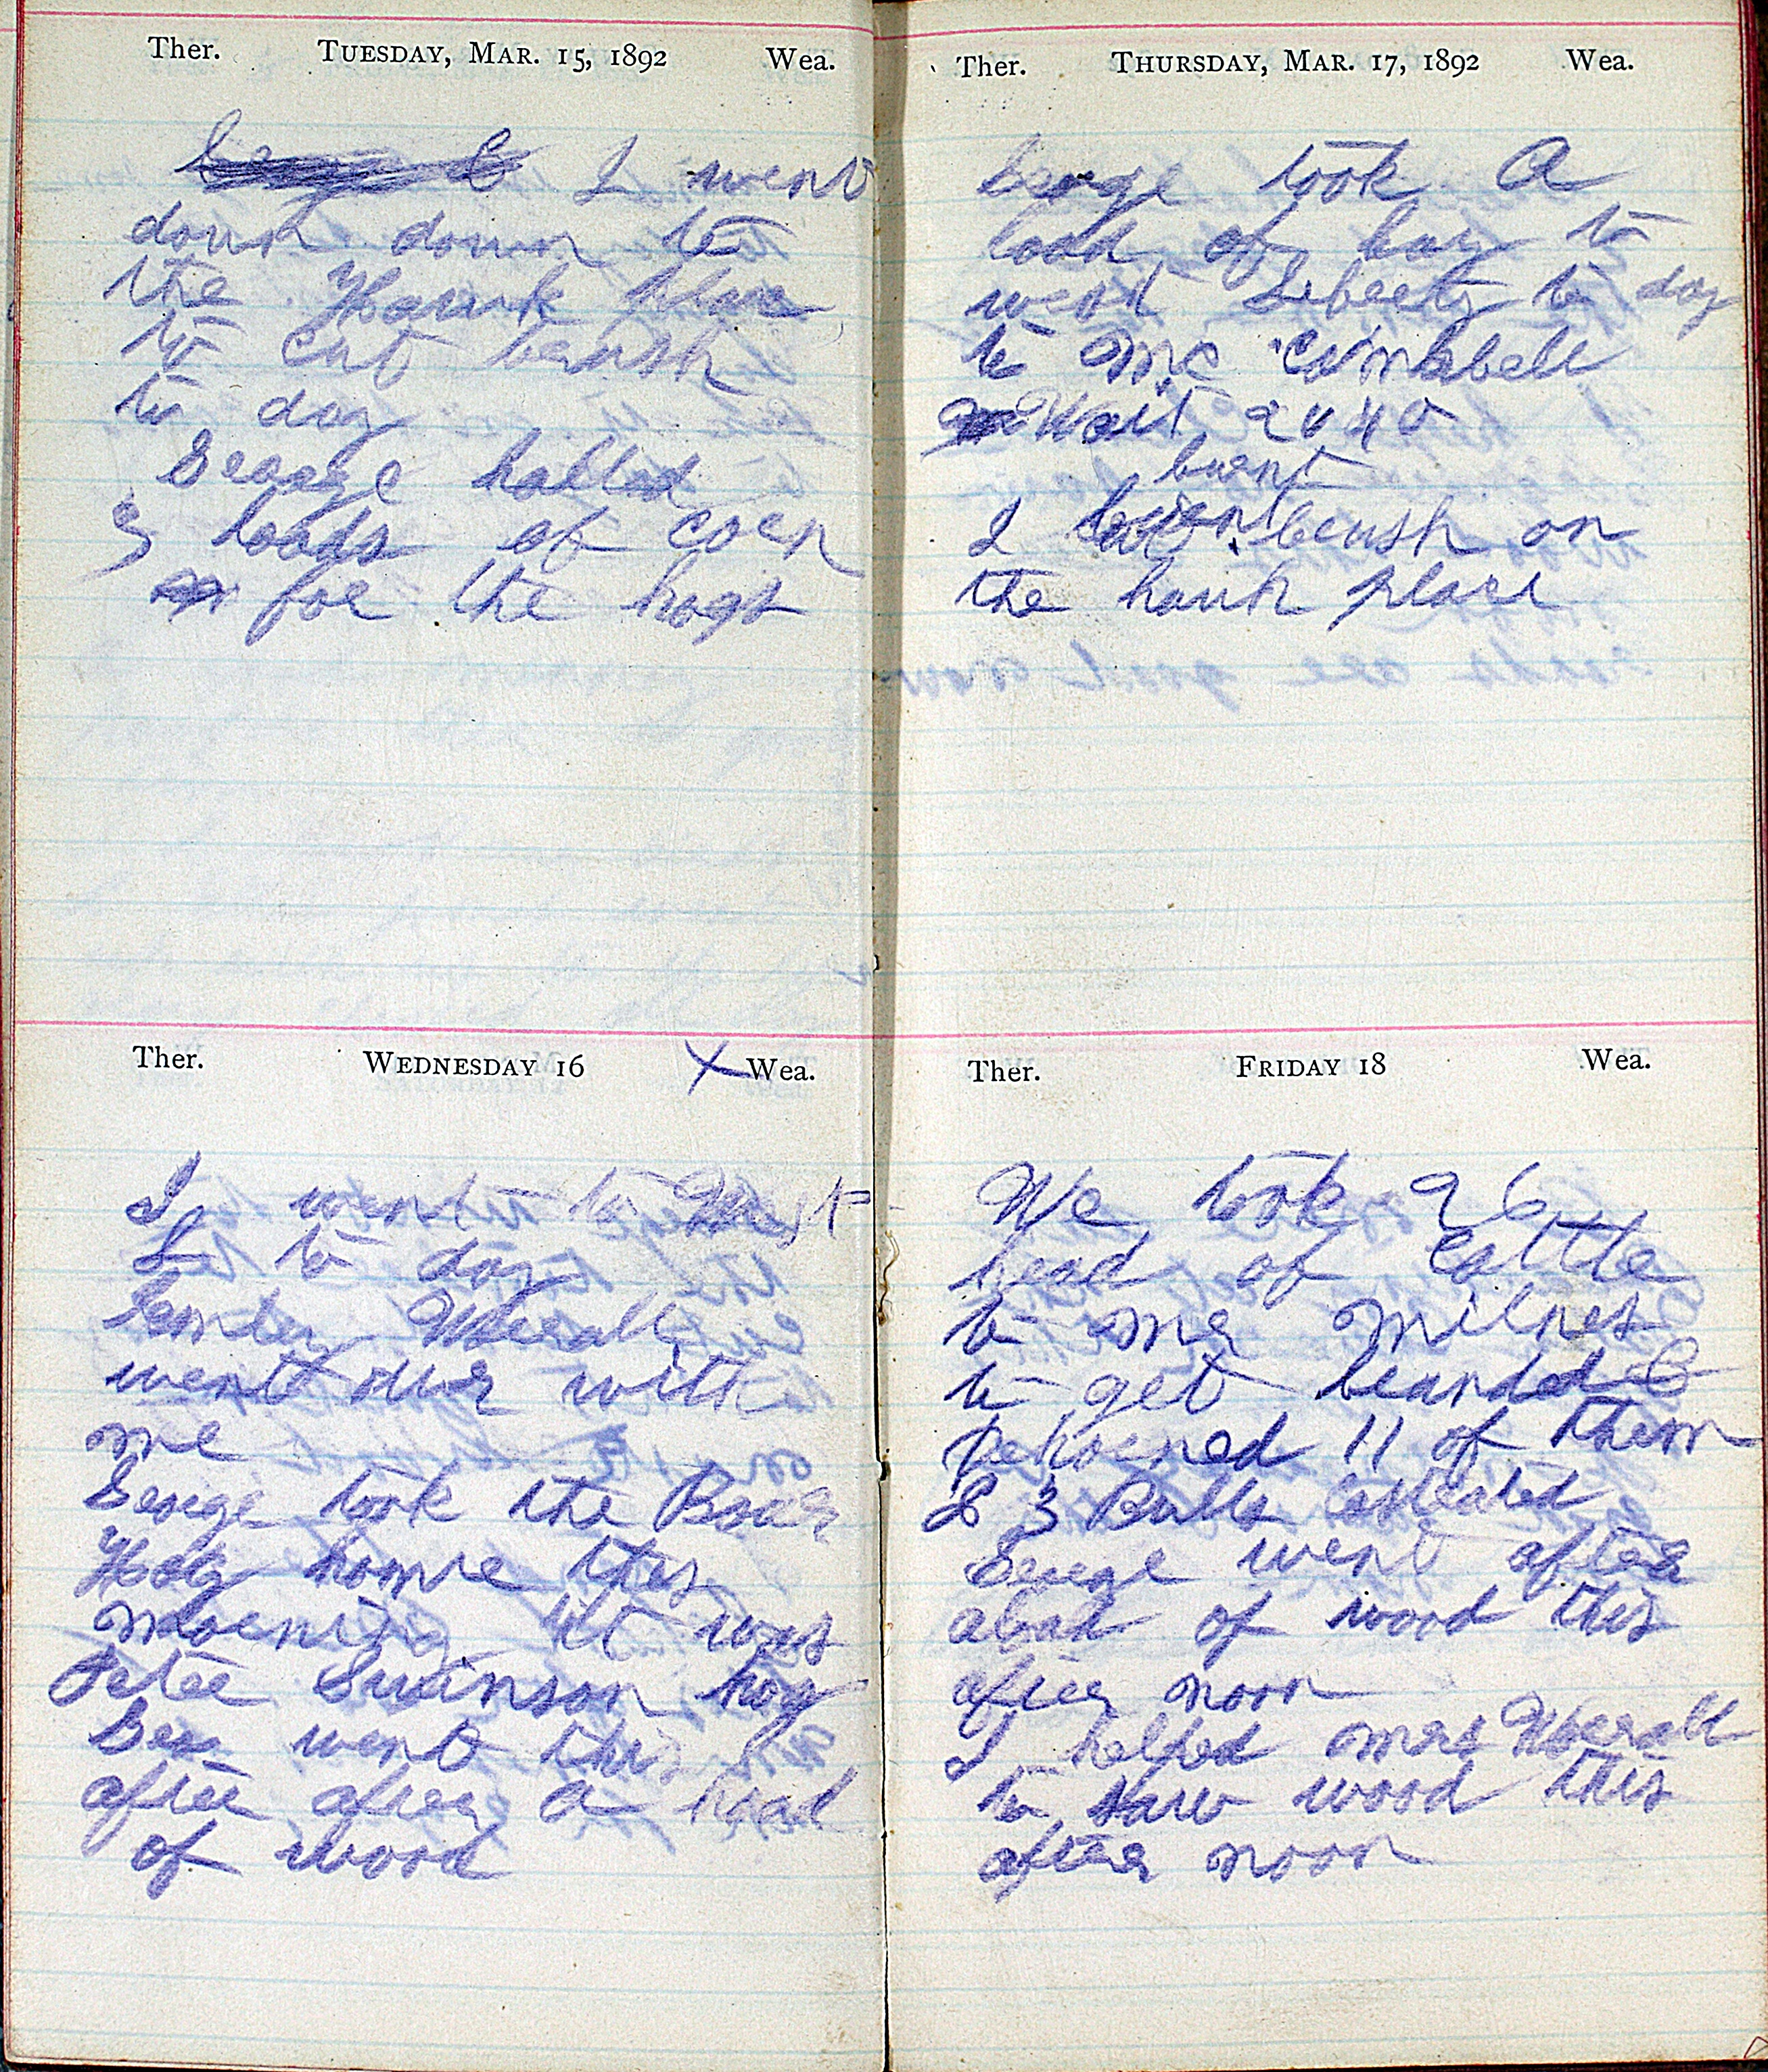 Ther. TUESDAY, MAR. 15, 1892 Wea.
I went
down down to
the Hauk place
to cut brush
to day
George halled
loads of corn
for the hogs
Ther. WEDNESDAY 16 X Wea.
I went to West
L to day
Worrall
went over with
me
George took the Boar
Hog home this
morning it was
Peter Swanson hog
Geo went this
after after a load
of wood
Ther. THURSDAY, MAR. 17, 1892 Wea.
George took A
load of hay to
west Liberty to day
to Mc Cambell
Wait 2040
burnt
I brush on
the hauk place
Ther. FRIDAY 18 Wea.
We took 26
head of Cattle
to Mr Milnes
to get branded &
dehorned 11 of them
& 3 Bulls Castrated
George went after
aload of wood this
after noon
I helped Mrs Worrall
to saw wood this
after noon